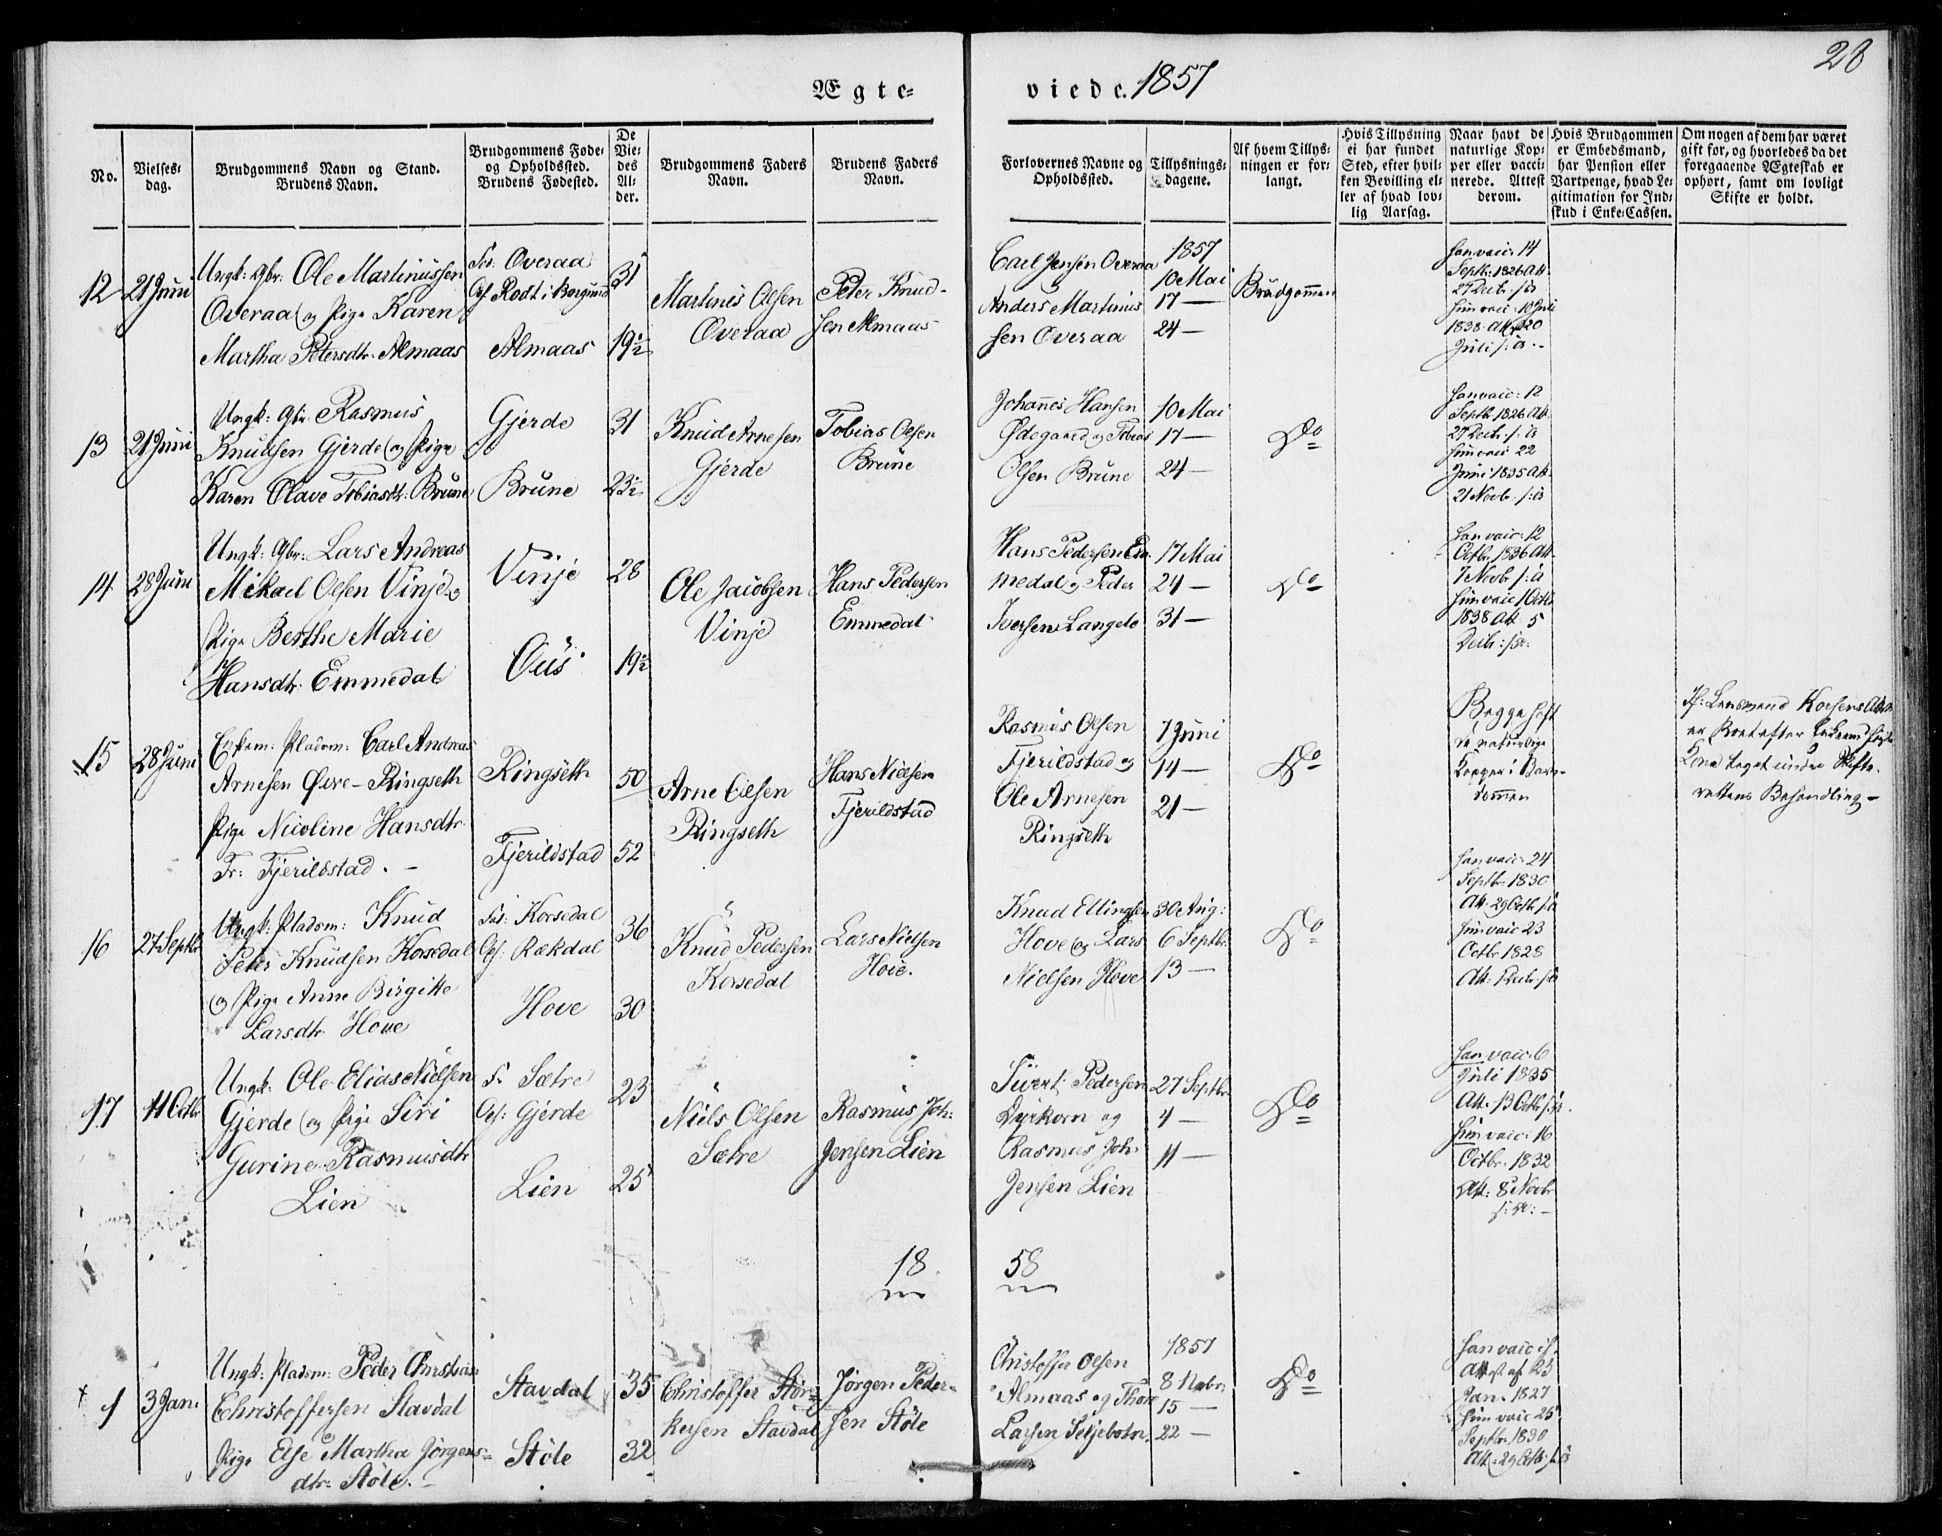 28
Ægte-
viede. 1857
No.
Vielses-
dag.
Brudgommens Navn og Stand.
Brudens Navn.
Brudgommens Føde-
og Opholdssted.
Brudens Fødested.
De
Vie-
des
Al-
der.
Brudgommens Faders
Navn.
Brudens Faders
Navn.
Forlovernes Navne og
Opholdssted.
Tillysnings-
dagene.
Af hvem Tillys-
ningen er for-
langt.
Hvis Tillysning
ei har fundet
Sted, efter hvil-
ken Bevilling el-
ler af hvad lov-
lig Aarsag.
Naar havt de
naturlige Kop-
per eller vacci-
nerede. Attest
derom.
Hvis Brudgommen
er Embedsmand,
har Pension eller
Vartpenge, hvad Le-
gitimation for Ind-
skud i Enke-Cassen.
Om nogen af dem har været
gift før, og hvorledes da det
foregaaende Ægteskab er
ophørt, samt om lovligt
Skifte er holdt.
12
21 Juni
Ungk: Gbr: Ole Martinussen
Overaa og Pige Karen
Martha Petersdtr. Almaas
Overaa
Rodt i Borgund
Almaas
31
19½
Martines Olsen
Overaa
Peter Knud-
sen Almaas
Carl Jensen Overaa
Anders Martinus
sen Overaa
1857
10 Mai
17 —
24 —
Brudgommen
han vaic: 14
Septbr. 1826 Att.
29 Decb. s: a
hun vaic: 10 Juli
1838. Att. 20
Juli s: a. -
13
21 Juni
Ungk: Gbr. Rasmus
Knudsen Gjerde og Pige
Karen Olave Tobiasdtr. Brune
Gjerde
Brune
31
23½
Knud Arnesen
Gjerde
Tobias Olsen
Brune
Johannes Hansen
Ødegaard og Tobias
Olsen Brune
10 Mai
17 —
24 —
Do
han vaic: 12
Septb 1826 Att.
29 Decb. s: a
hun vaic 22
Juni 1835 Att.
21 Novb. s: a
14
28 Juni
Ungk: Gbr: Lars Andreas
Mikael Olsen Vinje og
Pige Berthe Marie
Hansdtr. Emmedal
Vinje
Ous
28
19½
Ole Jacobsen
Vinje
Hans Pedersen
Emmedal
Hans Pedersen Em-
medal og Peder
Iversen Langelo
17 Mai
24 —
31 —
Do
han vaic: 12
Octbr. 1836 Att.
7 Novb. s: a
hun vaic 1 Octb
1838 Att. 5
Decbr: s: a.
15
28 Juni
Enkem: Pladsm: Carl Andreas
Arnesen Øvre-Ringseth
Pige Nicoline Hansdtr
Fr: Fjerildstad. -
Ringseth
Fjerildstad
50
52
Arne Olsen
Ringseth
Hans Nielsen
Fjerildstad
Rasmus Olsen
Fjerildstad og
Ole Arnesen
Ringseth
7 Juni
14 —
21 —
Do
Begge haft
de naturlige
Kopper i Barn-
dommen
er Boet efter
Kone taget under Skifte-
rettens Behandling -
16
27 Septbr
Ungk: Pladsm: Knud
Peter Knudsen Korsedal
og Pige Anne Birgitte
Larsdtr. Hove
Korsedal
Rekdal
Hove
36
30
Knud Pedersen
Korsedal
Lars Nielsen
Hove.
Knud Ellingsen
Hove og Lars
Nielsen Hove
30 Aug:
6 Septbr.
13 —
Do
han vaic: 24
Septbr. 1830
Att. 29 Octb. s: a
hun vaic 23
Octbr 1828
Att. Decb. s: a
17
11 Octbr
Ungk: Ole Elias Nielsen
Gjerde og Pige Siri
Gurine Rasmusdtr
Lien
Sætre
Gjerde
Lien
23
25
Niels Olsen
Sætre
Rasmus Joh:
Jensen Lien
Sivert Pedersen
Dyrkorn og
Rasmus Joh:
Jensen Lien
27 Septbr.
4 —
11 —
Do
han vaic: 6
Juli 1835
Att. 13 Octb. s: a.
hun vaic: 16
Octbr. 1832
Att: 8 Novb
s: a: -
18
58
1
3 Jan.
Ungk: Pladsm: Peder Christian
Christoffersen Stavdal
Pige Else Martha Jørgens-
dtr. Støle. -
Stavdal
Støle
35
32
Christoffer Stør-
kersen Stavdal
Jørgen Peder-
sen Støle
Christoffer Olsen
Almaas og Thore
Larsen Seljebotn.
1857
8 Nobr.
15 —
22 —
Do
Att af 23
Jan. 1827
hun vaic 25
Septbr. 1830
Att. 29 Octb. s: a